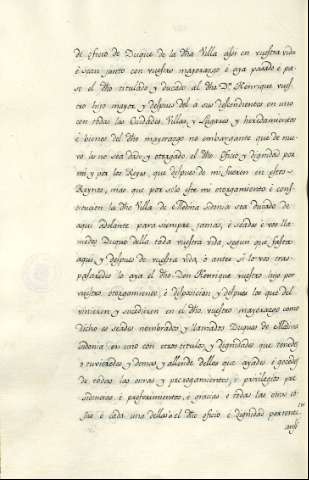 de oficio de Duque de la dha Villa assi en vuestra vida
ô sean junto con vuestro mayorazgo ê aya pasado ê pa-
se el dho titulado y ducado al dho Dn. Henrique vues-
tro hijo mayor y despues del a sus desçendientes en uno
con todas las Ciudades, Villas y Lugares y heredamientos
ê bienes del dho mayorazgo no embargante que de nue-
vo lo no sea dado y otorgado el dho Oficio y dignidad por
mi y por los Reyes, que despues de mi fueren en estos
Reynos, mas que por solo este mi otorgamiento ê cons-
titucion la dha Villa de Medina Sidonia sea ducado de
aqui adelante para siempre jamas, ê seades ê vos lla-
medes Duque della toda vuestra vida segun que fasta
aqui y despues de vuestra vida, ô antes si lo vos tras-
pasaredes lo aya el dho Don Henrique vuestro hijo por
vuestro otorgamiento ê disposicion y despues los que del
vinieren y sucedieren en el dho vuestro mayorazgo como
dicho es seades nombrados y llamados Duques de Medina
Sidonia en uno con otros titulos y dignidades que tenedes
ê tuvieredes y demas y allende dellos que ayades ê gocedes
de todas las onras y prerogamientos, ê privilegios pre-
ê preferimientos, ê gracias ê todas las otras co-
sas ê cada una dellas a el dho oficio ê dignidad pertenecien-